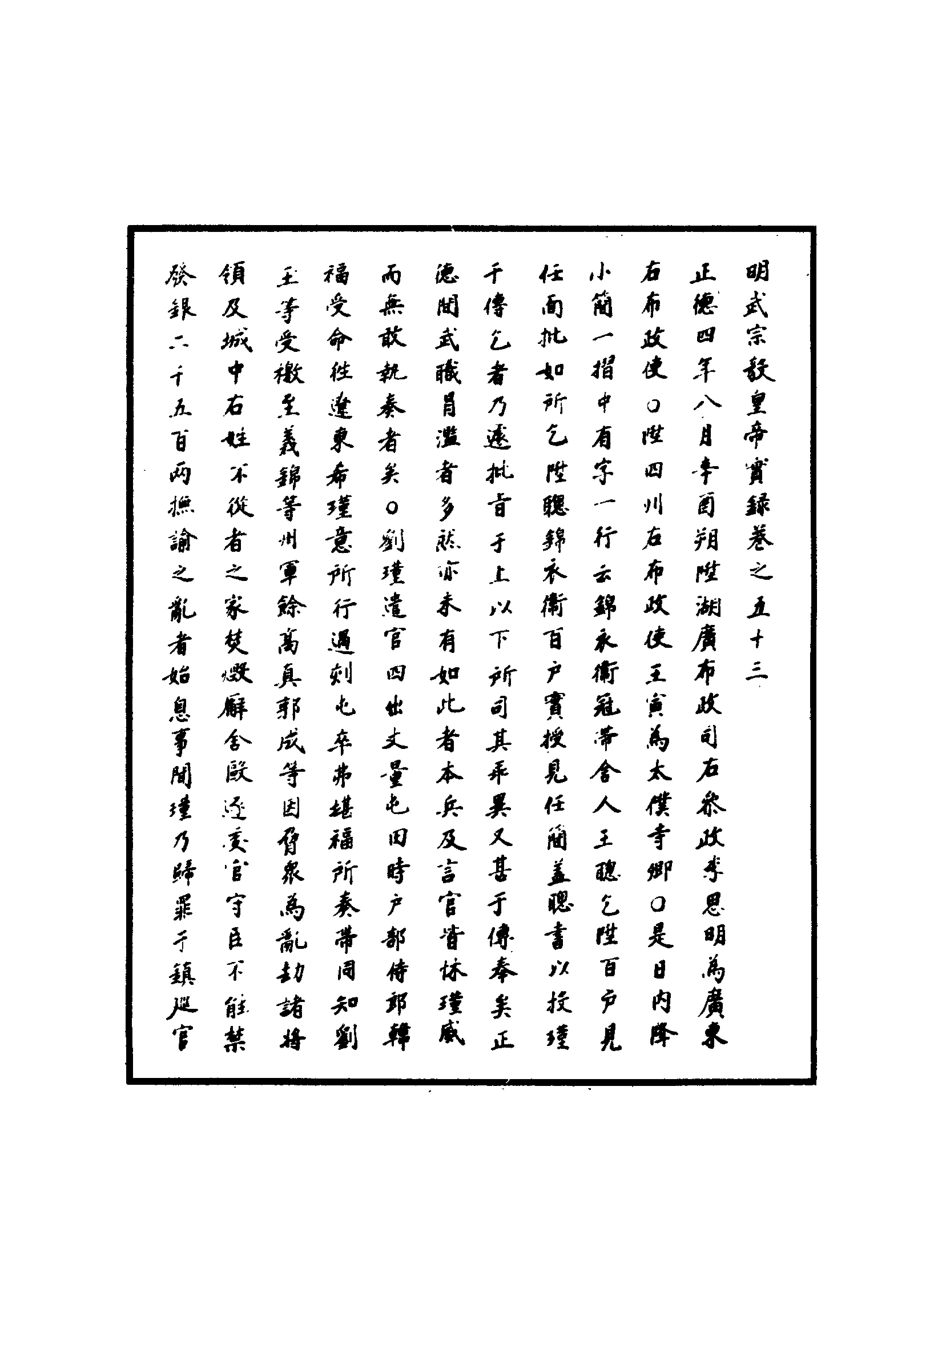 明武宗毅皇帝實録卷之五十三
正德四年八月辛酉朔陞湖廣布政司右叅政李思明為廣東
右布政使○陞四川右布政使王寅為太僕寺卿○是日内降
小簡一摺中有字一行云錦衣衛冠帶舍人王聰乞陞百户見
任面批如所乞陞聰錦衣衛百户實授見任簡盖聰書以投瑾
干傳乞者乃遽批旨于上以下所司其乖異又甚于傳奉矣正
德間武職冒濫者多然亦未有如此者本兵及言官皆怵瑾威
而無敢執奏者矣○劉瑾遣官四出丈量屯田時户部侍郎韓
福受命徃遼東希瑾意所行過刻屯卒弗堪福所奏帶同知劉
玉等受檄至義錦等州軍餘髙真郭成等因脅衆為亂刧諸将
領及城中右姓不從者之家焚燬廨舍毆逐委官守臣不能禁
發銀二千五百兩撫諭之亂者始息事聞瑾乃歸罪于鎮廵官